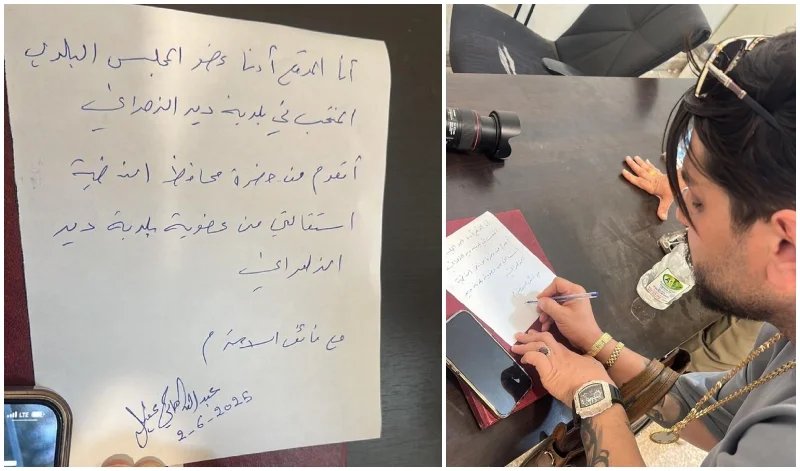 أنا الموقع أدنا عضو المجلس البلدي
المنتخب في بلدية دير الزهراني
أتقدم من حضرة محافظ النبطية
استقالتي من عضوية بلدية دير
الزهراني
مع فائق السلامة م
عبدالله
2-6-2025
LTE